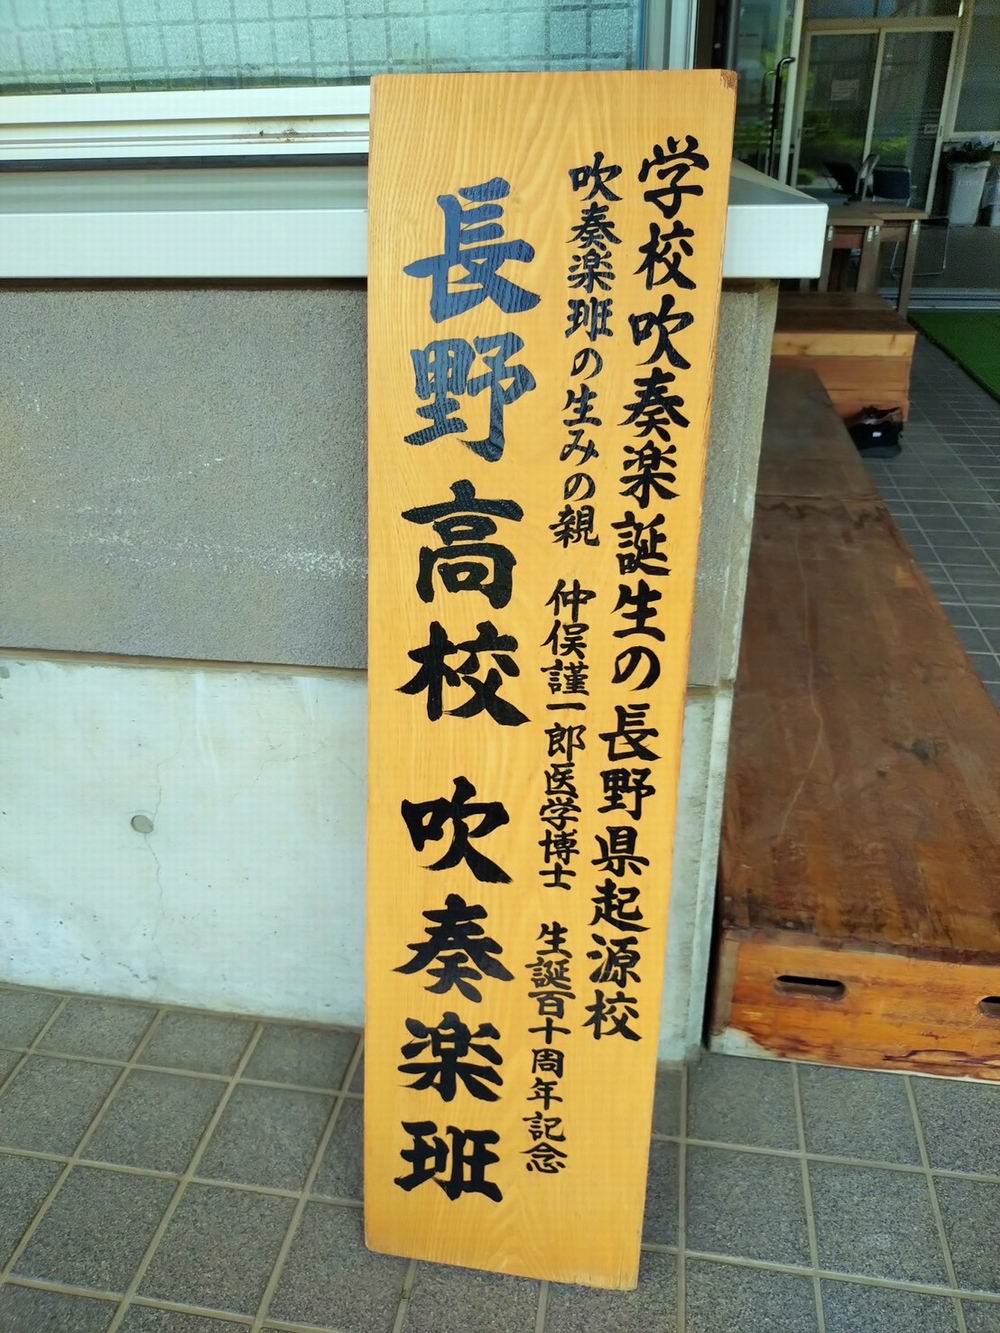 学校吹奏楽誕生の長野県起源校
吹奏楽班の生みの親 仲俣謹一郎医学博士 生誕百十周年記念
長野高校 吹奏楽班